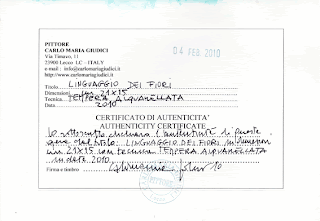 04 FEB 2010
PITTORE
CARLO MARIA GIUDICI
Via Timavo, 11
23900 Lecco LC - ITALY
e-mail : info@carlomariagiudici.it
http://www.carlomariagiudici.it
Titolo LINGUAGGIO DEI FIORI
Dimensioni cm. 21X15
Tecnica TEMPERA ACQUARELLATA
Data 2010
CERTIFICATO DI AUTENTICITA'
AUTHENTICITY CERTIFICATE
Io sottoscritto dichiaro l'autenticità di questa
opera dal titolo: LINGUAGGIO DEI FIORI in dimensioni
cm. 21X15 con tecnica TEMPERA ACQUARELLATA
in data 2010.
Firma e timbro